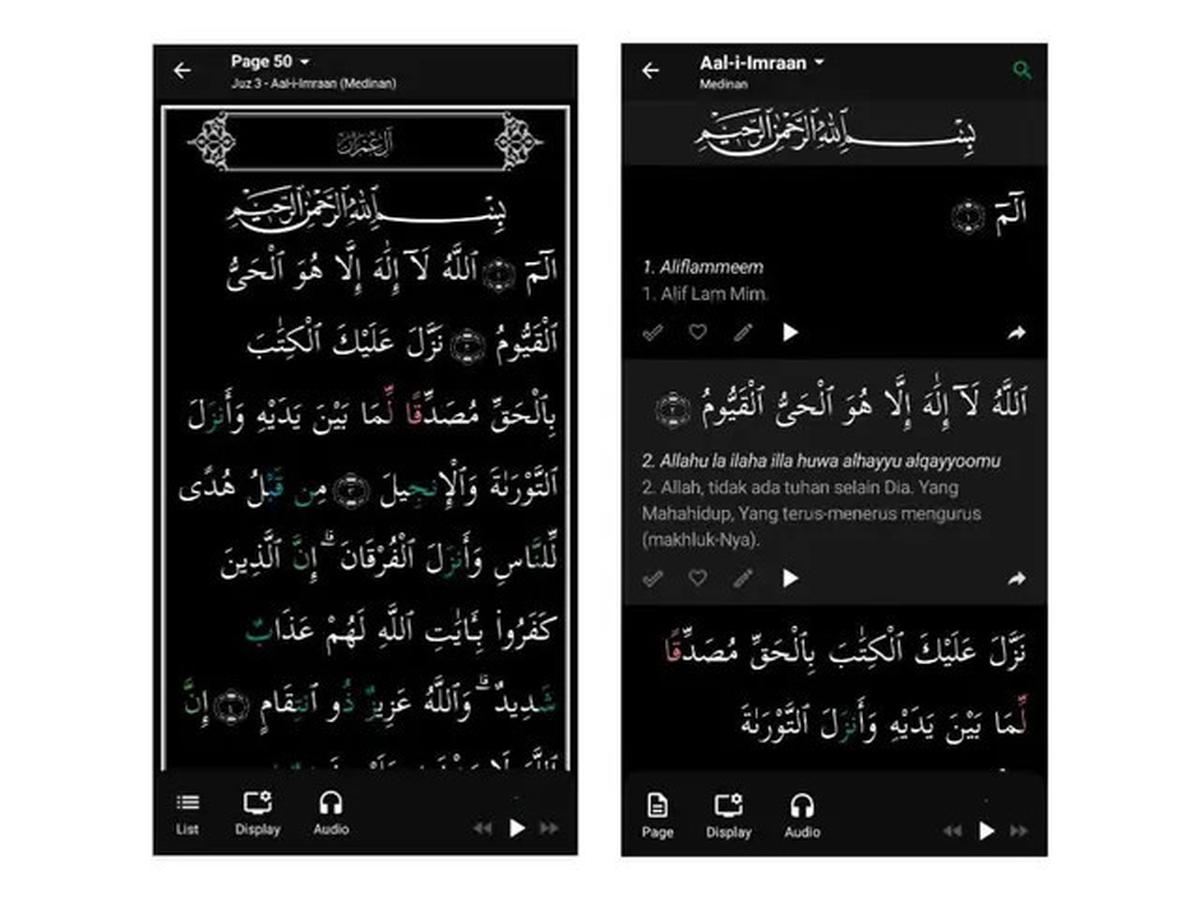 Page 50
Juz 3 - Aal-i-Imraan (Medinan)
آل عمران
بِسْمِ ٱللَّهِ ٱلرَّحْمَٰنِ ٱلرَّحِيمِ
الٓمٓ ١ ٱللَّهُ لَآ إِلَٰهَ إِلَّا هُوَ ٱلْحَىُّ
ٱلْقَيُّومُ ٢ نَزَّلَ عَلَيْكَ ٱلْكِتَٰبَ
بِٱلْحَقِّ مُصَدِّقًا لِّمَا بَيْنَ يَدَيْهِ وَأَنزَلَ
ٱلتَّوْرَىٰةَ وَٱلْإِنجِيلَ ٣ مِن قَبْلُ هُدًى
لِّلنَّاسِ وَأَنزَلَ ٱلْفُرْقَانَ ۗ إِنَّ ٱلَّذِينَ
كَفَرُوا۟ بِـَٔايَٰتِ ٱللَّهِ لَهُمْ عَذَابٌ
شَدِيدٌ ۗ وَٱللَّهُ عَزِيزٌ ذُو ٱنتِقَامٍ ٤ إِنَّ
List
Display
Audio
Aal-i-Imraan
Medinan
بِسْمِ ٱللَّهِ ٱلرَّحْمَٰنِ ٱلرَّحِيمِ
الٓمٓ ١
1. Aliflammeem
1. Alif Lam Mim.
ٱللَّهُ لَآ إِلَٰهَ إِلَّا هُوَ ٱلْحَىُّ ٱلْقَيُّومُ ٢
2. Allahu la ilaha illa huwa alhayyu alqayyoomu
2. Allah, tidak ada tuhan selain Dia. Yang
Mahahidup, Yang terus-menerus mengurus
(makhluk-Nya).
نَزَّلَ عَلَيْكَ ٱلْكِتَٰبَ بِٱلْحَقِّ مُصَدِّقًا
لِّمَا بَيْنَ يَدَيْهِ وَأَنزَلَ ٱلتَّوْرَىٰةَ
Page
Display
Audio